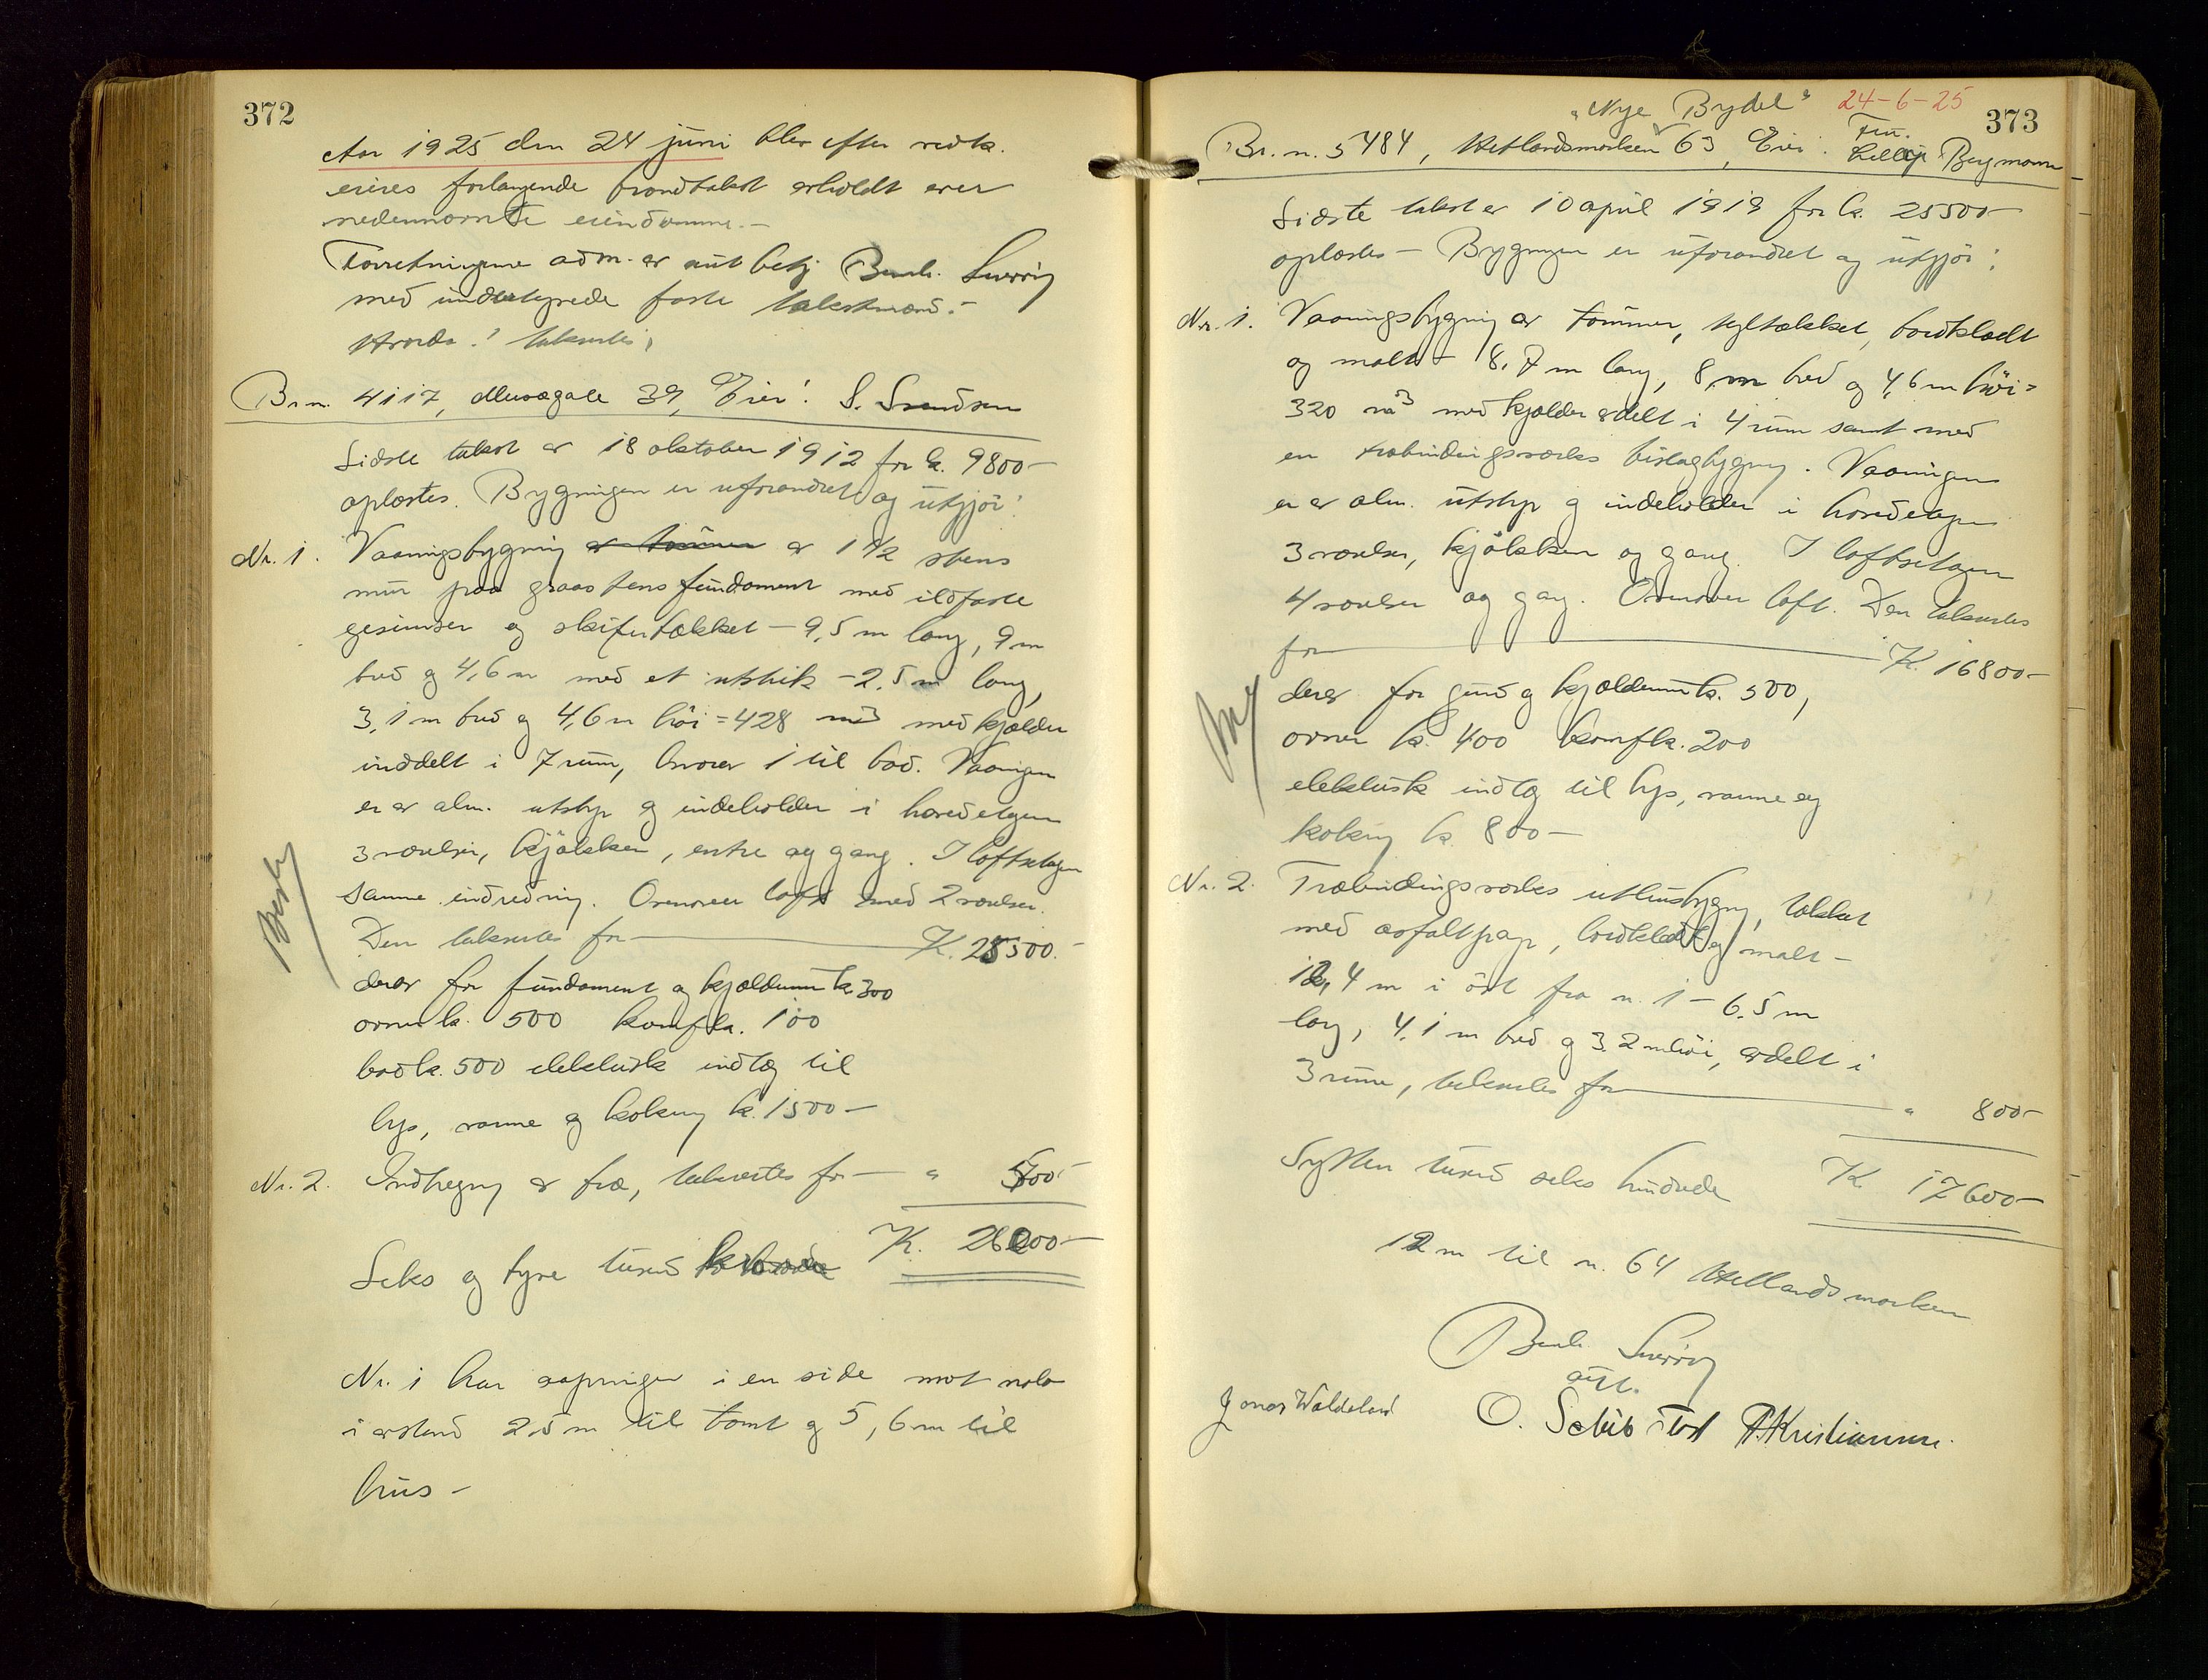 372
Aar 1925 den 24 juni blev efter vedk.
eieres forlangende brandtakst avholdt over
nedennævnte eiendomme.-
Forretningene adm. av aut. betj. Bernh. Sverring
med undertegnede faste takstmænd.-
Hvorda! takseres;
Br.n. 4117, Musægate 39, Eier: S. Svendsen
Sidste takst av 18 oktober 1912 for k. 9800-
oplæstes. Bygningen er uforandret og utgjör:
Nr. 1. Vaaningsbygning av tömmer av 1 1/2 stens
mur paa graastens fundament med ildfaste
gesimser og skifertækket - 9,5 m lang, 9 m
bred og 4,6 m med et utstik - 2,5 m lang,
3,1 m bred og 4,6 m höi = 428 m3 med kjælder
inddelt i 7 rum, hvorav 1 til bad. Vaaningen
er av alm. utstyr og indeholder i hovedetagen
3 værelser, kjökken, entre og gang. I loftsetagen
samme indredning. Ovenover loft med 2 værelser.
Den takseres for K. 25500.-
derav for fundament og kjældermur k. 300
ovner k. 500 komf k. 100
bad k. 500 elektrisk indlæg til
lys, varme og kokning k. 1500-
Nr. 2. Indhegning av træ, takseres for - " 500-
K. 26000-
Seks og tyve tusind
Nr. 1 har aapninger i en side mot nabo
i avstand 2,5 m til tomt og 5,6 m til
hus -
"Nye Bydel" 24-6-25
373
Br. n. 5484, Hetlandsmarken 63, Eier: Bergmann
Sidste takst av 10 april 1919 for k. 25500-
oplæstes - Bygningen er uforandret og utgjör:
Nr. 1. Vaaningsbygning av tömmer, tegltækket, bordklædt
og malt - 8,7 m lang, 8 m bred og 4,6 m höi =
320 m3 med kjælder avdelt i 4 rum samt med
en træbindingsverks bislagbygning. Vaaningen
er av alm. utstyr og indeholder i hovedetagen
3 værelser, kjökken og gang. I loftsetagen
4 værelser og gang. Ovenover loft. Den takseres
for K. 16800-
derav for grund og kjældermur k. 500,
ovner k. 400 komf k. 200
elektrisk indlæg til lys, varme og
kokning k. 800-
Nr. 2. Træbindingsverks uthusbygning, tækket
med asfaltpap, bordklædt og malt -
12,4 m i öst fra n. 1 - 6,5 m
lang, 4,1 m bred og 3,2 m höi, avdelt i
3 rum, takseres for " 800-
Sytten tusind seks hundrede K. 17600-
12 m til n. 64 Hetlandsmarken
Bernh. Sverring
aut.
Jonas Waldeland O. Schibsted P. Kristiansen.